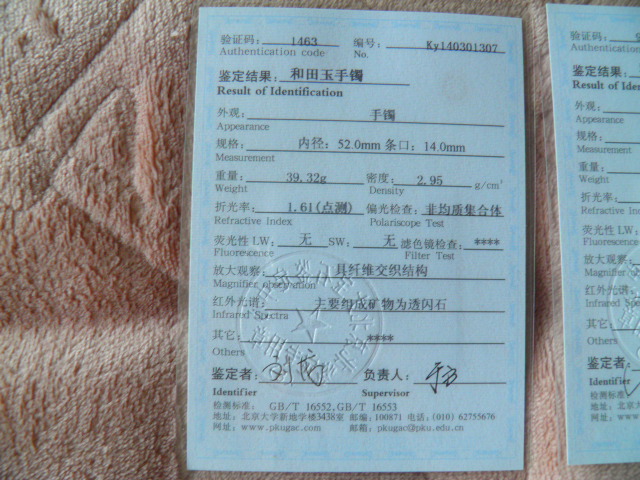 验证码: 1463 编号: Ky140301307
Authentication code No.
鉴定结果: 和田玉手镯
Result of Identification
外观: 手镯
Appearance
规格: 内径: 52.0mm 条口: 14.0mm
Measurement
重量: 39.32g 密度: 2.95 g/cm³
Weight Density
折光率: 1.61(点测) 偏光检查: 非均质集合体
Refractive Index Polariscope Test
荧光性 LW: 无 SW: 无 滤色镜检查: ****
Fluorescence Filter Test
放大观察: 具纤维交织结构
Magnifier observation
红外光谱: 主要组成矿物为透闪石
Infrared Spectra
其它: ****
Others
鉴定者: 负责人:
Identifier Supervisor
检测标准: GB/T 16552,GB/T 16553
地址: 北京大学新地学楼3438室 邮编:100871 电话:(010) 62755676
网址: www.pkugac.com 邮箱: pkugac@pku.edu.cn
验证码:
Authentication
鉴定结果:
Result of Ide
外观:
Appearance
规格:
Measurement
重量:
Weight
折光率:
Refractive Inde
荧光性
Fluorescence
放大观
Magnifier
红外光谱
Infrared Spe
其它:
Others
鉴定者:
Identifier
检测标准:
地址: 北
网址: www